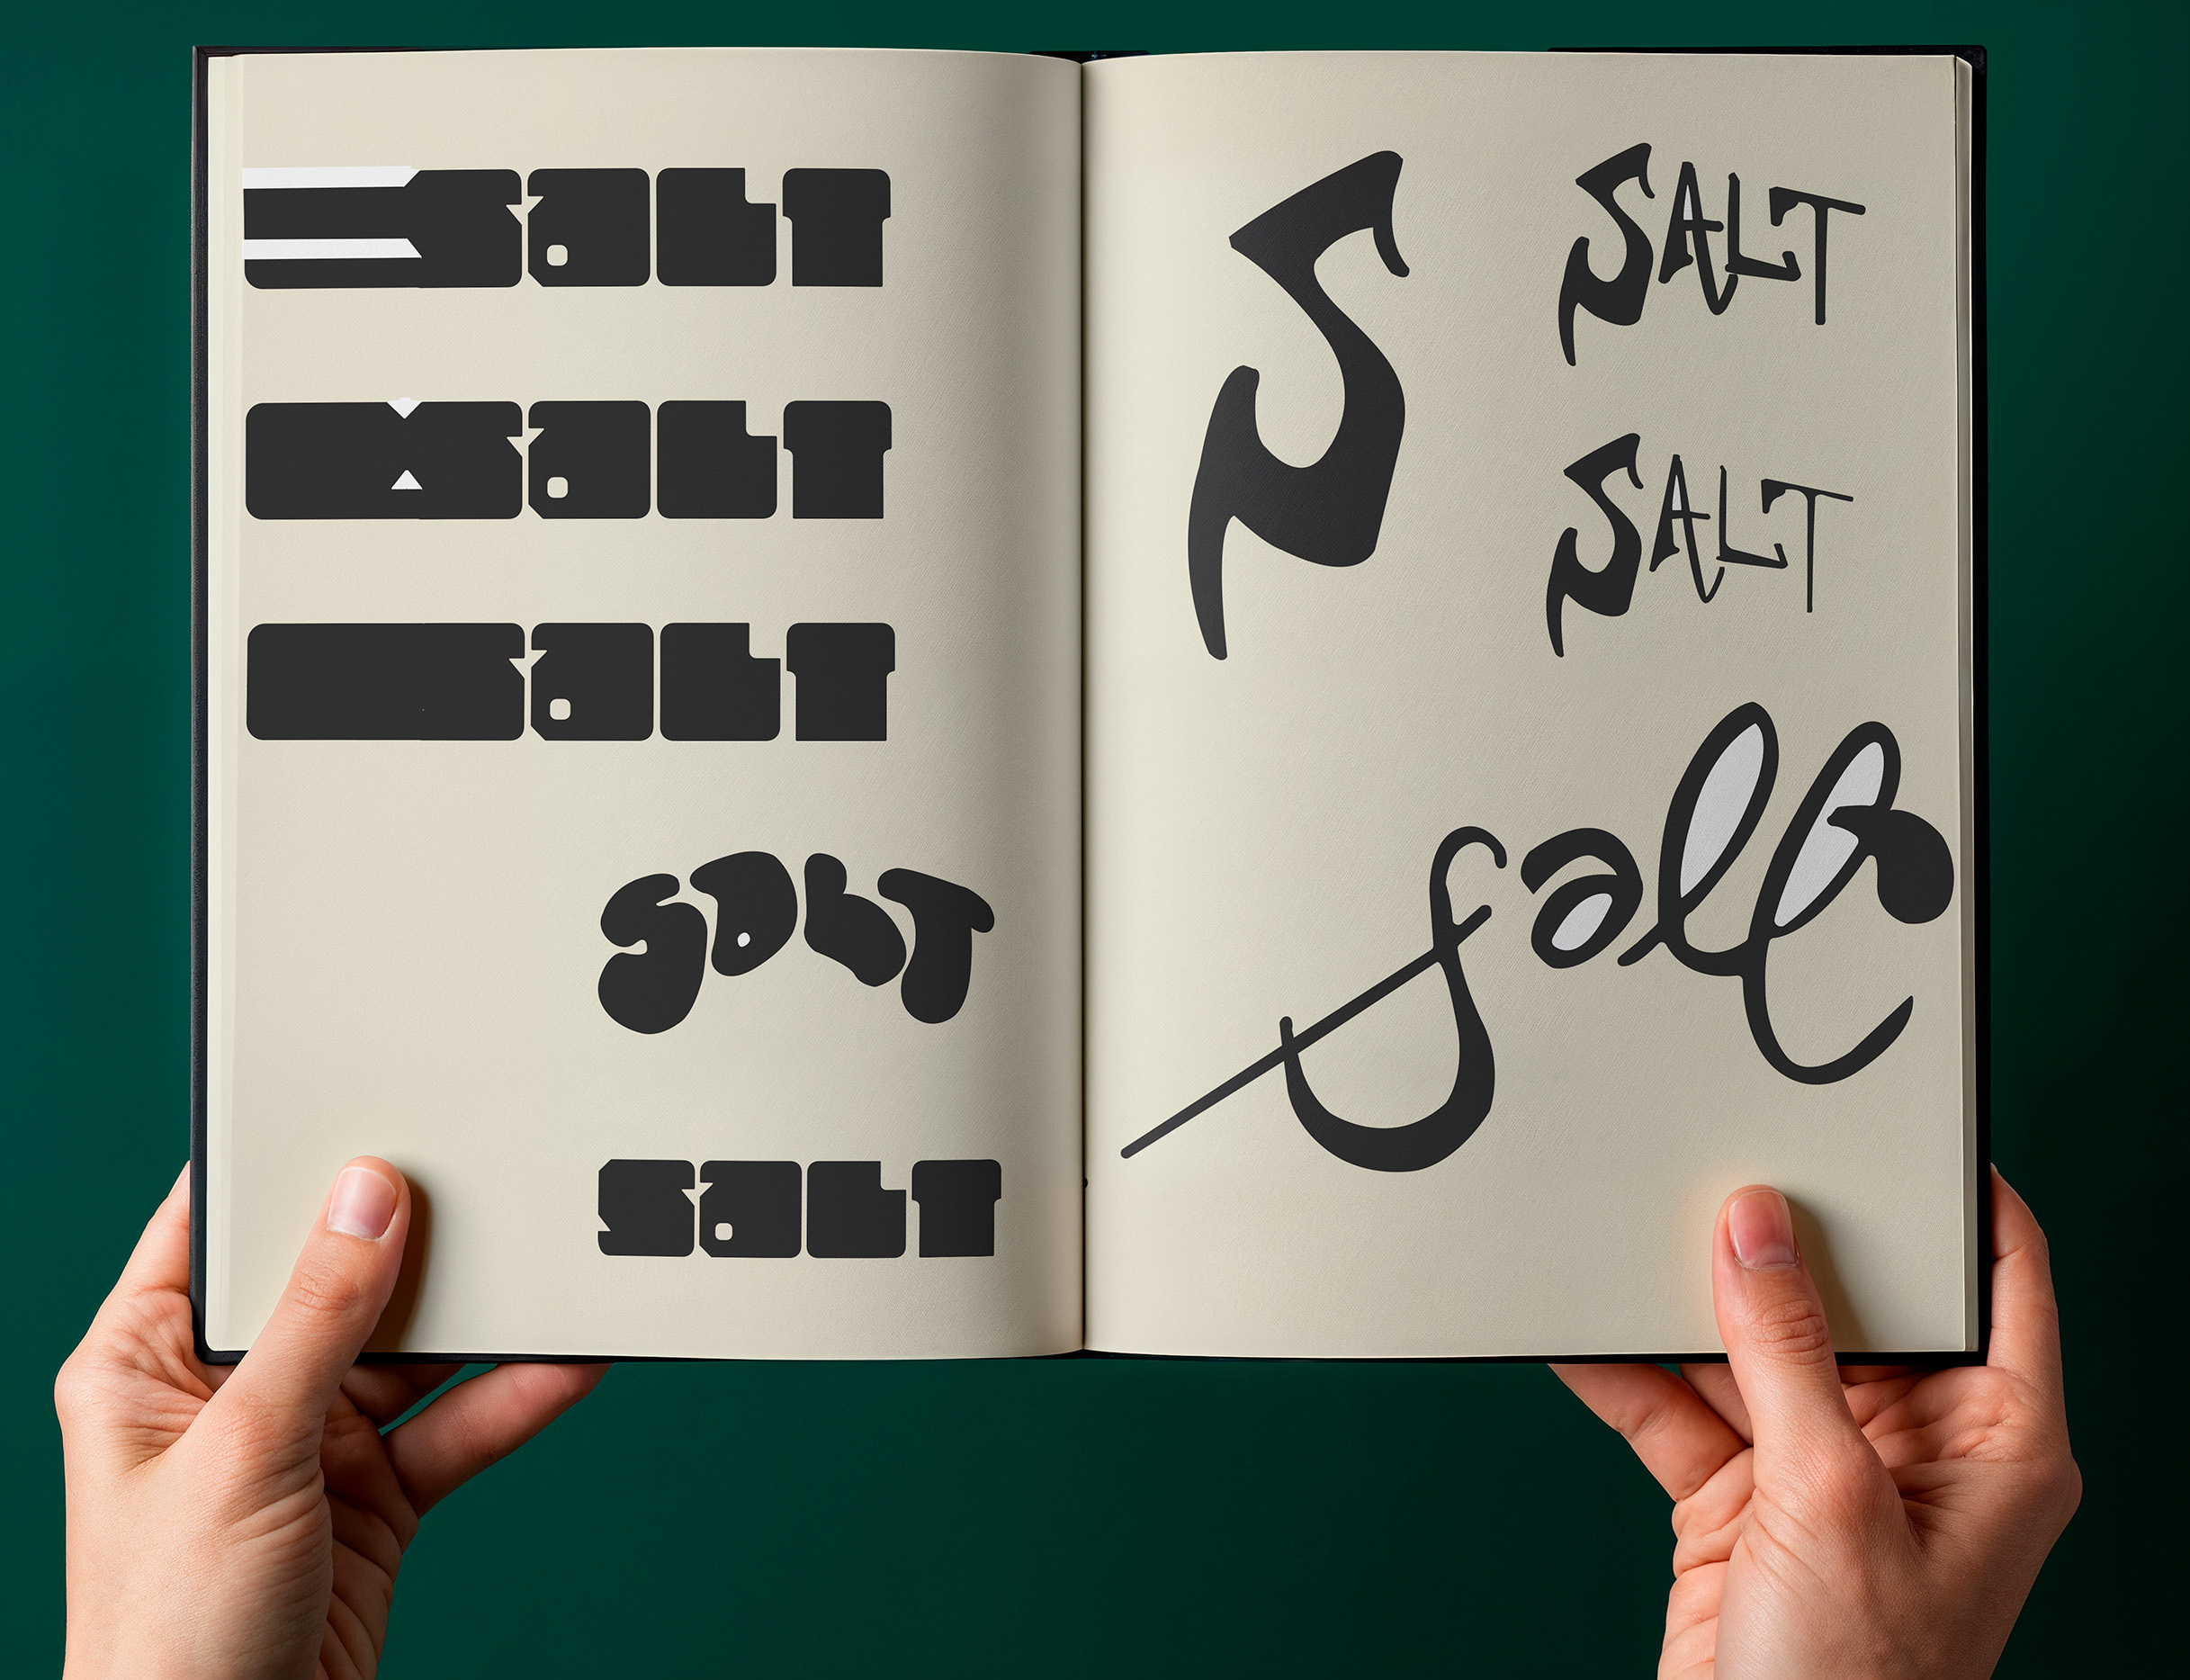 SaLT
SaLT
SaLT
SaLT
SaLT
S
SALT
SALT
salt